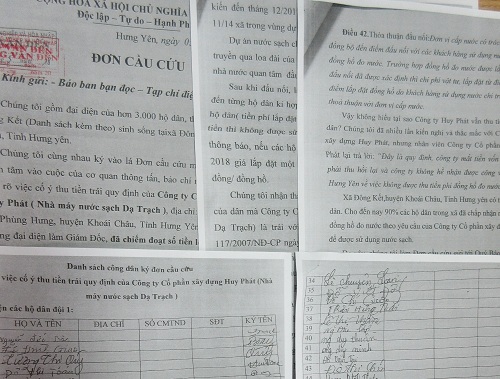 CỘNG HÒA XÃ HỘI CHỦ NGHĨA
Độc lập - Tự do - Hạnh Ph
Hưng Yên, ngày
ĐƠN CẦU CỨU
Kính gửi: - Báo ban bạn đọc – Tạp chí điệ
Chúng tôi gồm đại diện của hơn 3.000 hộ dân, th
g Kết (Danh sách kèm theo) sinh sống tại xã Đôn
, Tỉnh Hưng yên.
Chúng tôi cùng nhau ký vào lá Đơn cầu cứu
tâm vào cuộc của cơ quan thông tấn, báo chí
rõ việc cố ý thu tiền trái quy định của Công ty C
y Phát ( Nhà máy nước sạch Dạ Trạch ), địa chỉ
Phùng Hưng, huyện Khoái Châu, Tỉnh Hưng Yên
ng đại diện làm Giám Đốc, đã chiếm đoạt số tiền
kiến đến tháng 12/201
11/14 xã trong vùng dự
Dự án nước sạch ch
truyền qua loa đài của
nhà nước quan tâm đầu
Sau khi đấu nối,
đến từng hộ dân kí hợp
hộ dân( tiền phí lắp đặt
tiền thì không được sử
thông báo, nếu các hộ
2018 giá lắp đặt một
đồng/ đồng hồ.
Chúng tôi nhận th
của dân mà Công ty C
Dạ Trạch) là trái vớ
117/2007/NĐ-CP ngà
Điều 42.Thỏa thuận đấu nối:Đơn vị cấp nước có trác
đồng bộ đến điểm đấu nối với các khách hàng sử dụng n
đồng hồ đo nước. Trường hợp đồng hồ đo nước được lắ
đấu nối đã được xác định thì chi phí vật tư, lắp đặt từ đi
điểm lắp đặt đồng hồ do khách hàng sử dụng nước chi tr
thoả thuận với đơn vị cấp nước.
Vậy không hiểu tại sao Công ty Huy Phát vẫn thu ti
dân? Chúng tôi đã nhiều lần kiến nghị và thắc mắc với C
xây dựng Huy Phát, nhưng nhân viên Công ty Cổ phần
Phát lại trả lời: "Đây là quy định, công ty mất tiền vốn
phát thu hồi lại và công ty không hề nhận được công
Hưng Yên về việc không được thu tiền phí đồng hồ đo nước
Xã Đông Kết,huyện Khoái Châu, Tỉnh Hưng yên có
dân. Cho đến nay 90% các hộ dân trong xã đã chấp nhận
đồng hồ đo nước theo yêu cầu của Công ty Cổ phần xây d
để được sử dụng nước sạch.
Danh sách công dân ký đơn cầu cứu
việc cố ý thu tiền trái quy định của Công ty Cổ phần xây dựng Huy Phát (Nhà
máy nước sạch Dạ Trạch )
iện các hộ dân đội 1:
HỌ VÀ TÊN ĐỊA CHỈ SỐ CMTND SĐT KÝ TÊN
34
35
36
37
38
39
40
41
42
43